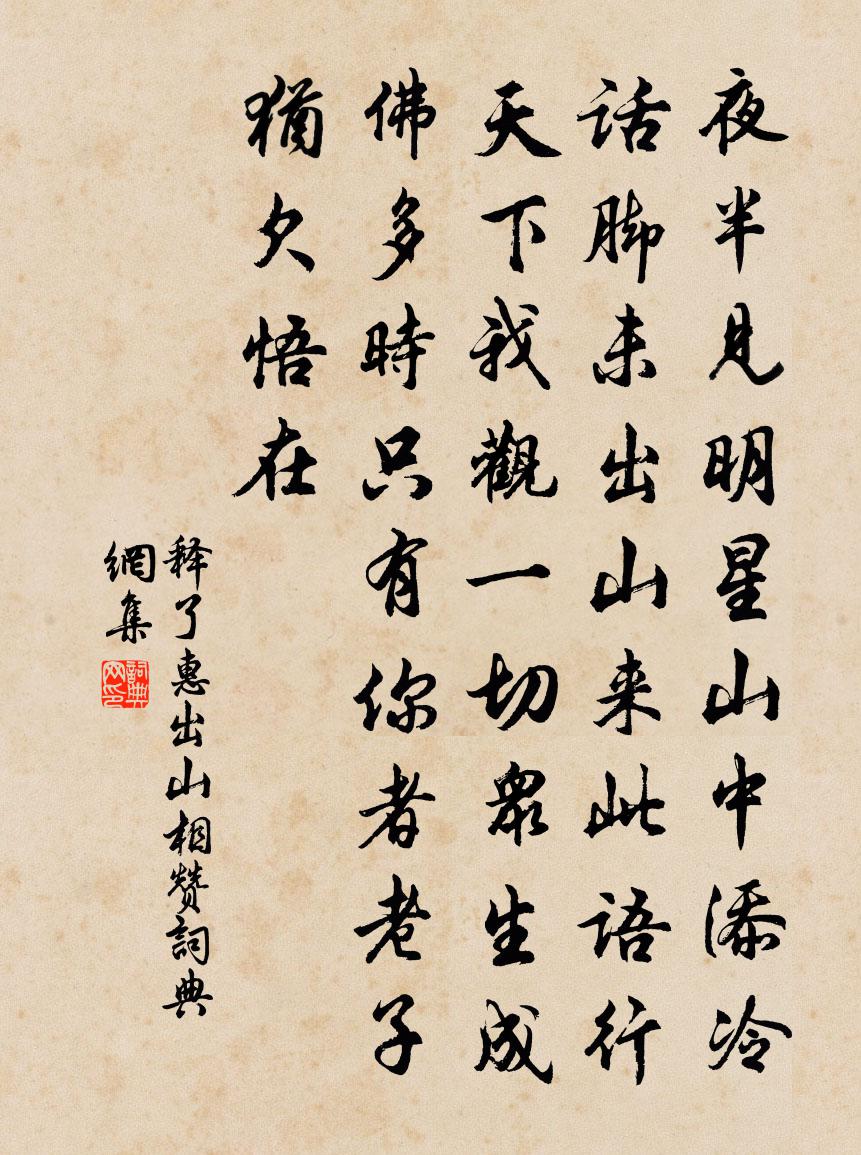 夜半見明星山中添冷
话脚未出山来此語行
天下我觀一切衆生成
佛多時只有你者老子
猶欠悟在
释了惠出山相赞詞典
網集
詞典
网印